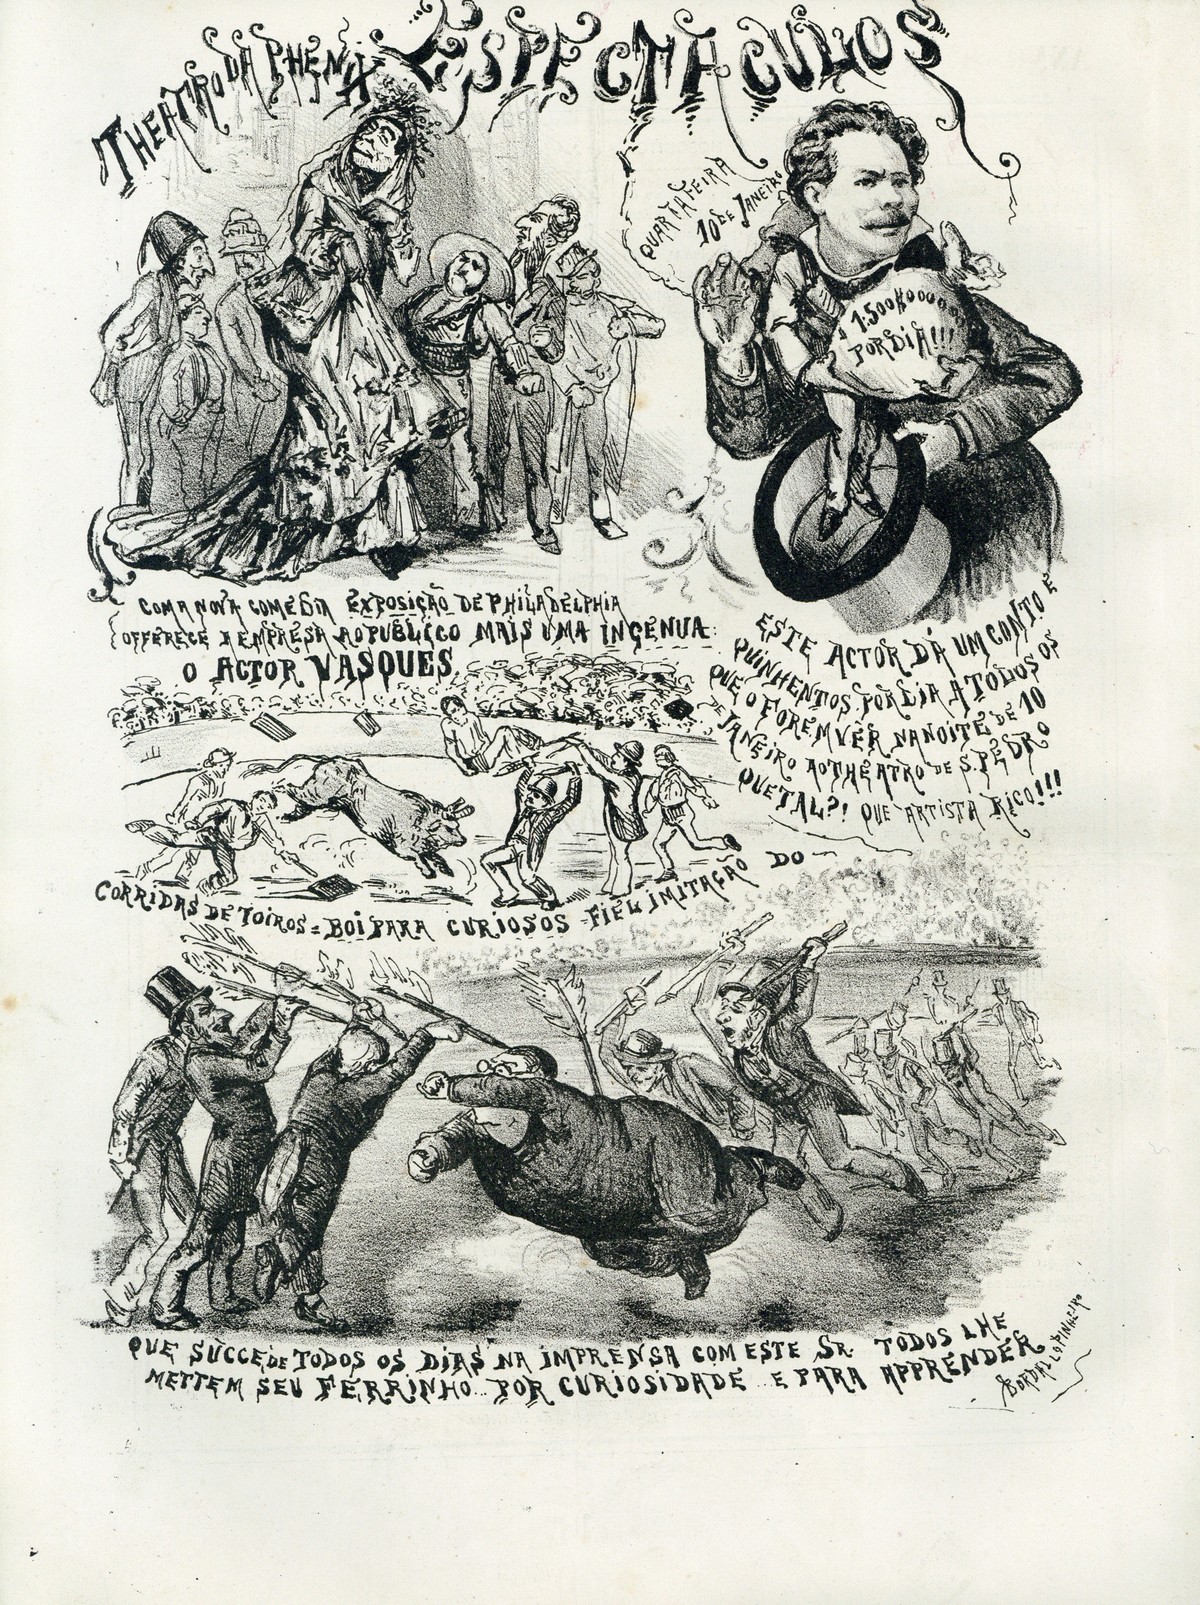 ESPECTACULOS
THEATRO DA PHENIX
COM A NOVA COMEDIA EXPOSIÇÃO DE PHILADELPHIA
OFFERECE A EMPRESA AO PUBLICO MAIS UMA INGENUA:
O ACTOR VASQUES
QUARTA FEIRA
10 DE JANEIRO
1:500$000
POR DIA!!!
ESTE ACTOR DÁ UM CONTO E
QUINHENTOS POR DIA A TODOS OS
QUE O FOREM VÊR NA NOITE DE 10
DE JANEIRO AO THEATRO DE S. PEDRO
QUE TAL?! QUE ARTISTA RICO!!!
CORRIDAS DE TOIROS = BOI PARA CURIOSOS - FIEL IMITAÇÃO DO
QUE SUCCEDE TODOS OS DIAS NA IMPRENSA COM ESTE SR. TODOS LHE
METTEM SEU FERRINHO... POR CURIOSIDADE... E PARA APPRENDER
BORDALLO PINHEIRO